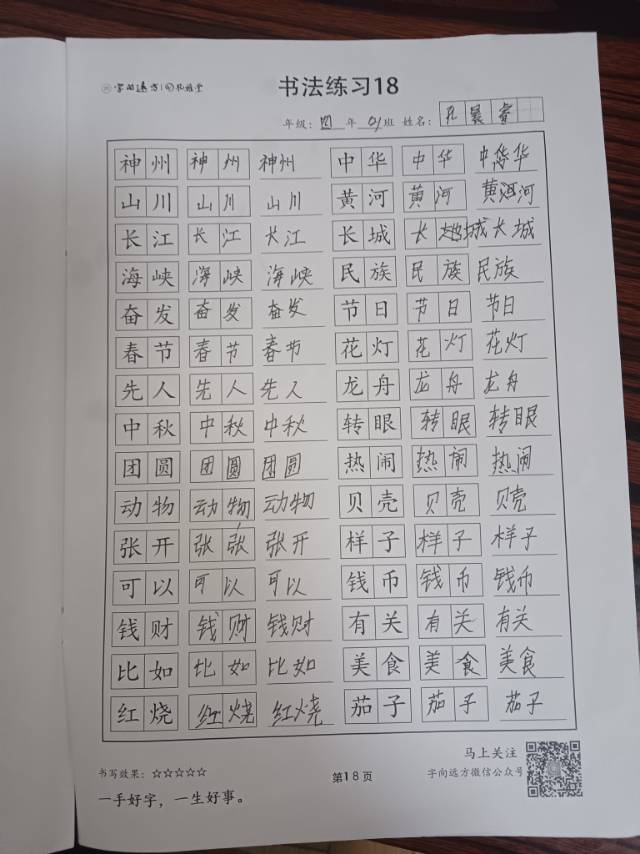 字向远方
书法练习18
年级：四年01班 姓名：孔晨睿
神州 神州 神州 中华 中华 中华
山川 山川 山川 黄河 黄河 黄河
长江 长江 长江 长城 长城 长城
海峡 海峡 海峡 民族 民族 民族
奋发 奋发 奋发 节日 节日 节日
春节 春节 春节 花灯 花灯 花灯
先人 先人 先人 龙舟 龙舟 龙舟
中秋 中秋 中秋 转眼 转眼 转眼
团圆 团圆 团圆 热闹 热闹 热闹
动物 动物 动物 贝壳 贝壳 贝壳
张开 张张 张开 样子 样子 样子
可以 可以 可以 钱币 钱币 钱币
钱财 钱财 钱财 有关 有关 有关
比如 比如 比如 美食 美食 美食
红烧 红烧 红烧 茄子 茄子 茄子
马上关注
书写效果：☆☆☆☆☆ 第18页 字向远方微信公众号
一手好字，一生好事。